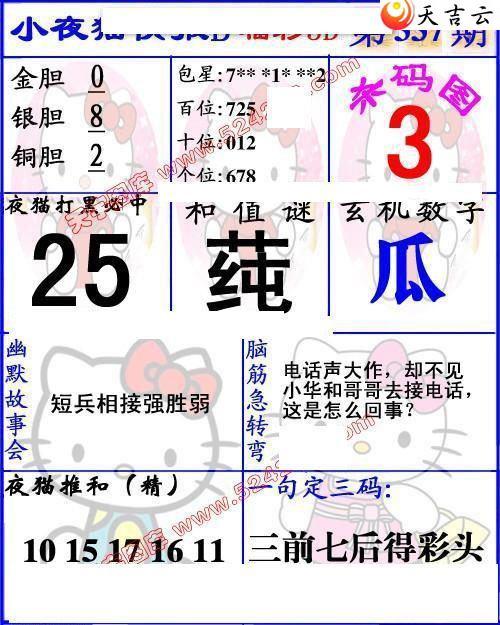 天吉云
小夜猫 D 福彩3D 第337期
金胆 0
银胆 8
铜胆 2
包星:7** *1* **2
百位:725
十位:012
个位:678
杀码图
3
夜猫打黑必中
25
和值谜
莼
玄机数字
瓜
幽默故事会
短兵相接强胜弱
脑筋急转弯
电话声大作，却不见
小华和哥哥去接电话，
这是怎么回事？
夜猫推和（精）
10 15 17 16 11
一句定三码:
三前七后得彩头